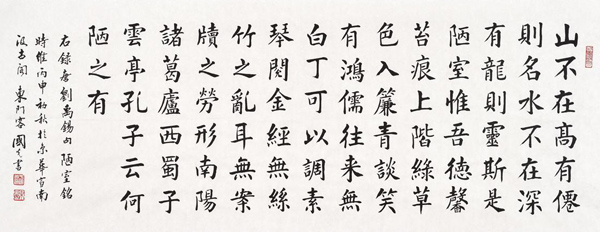 山不在髙有僊
則名水不在深
有龍則靈斯是
陋室惟吾德馨
苔痕上階綠草
色入簾青談笑
有鴻儒往来無
白丁可以調素
琴閱金經無絲
竹之亂耳無案
牘之勞形南陽
諸葛廬西蜀子
雲亭孔子云何
陋之有
右錄唐劉禹錫句陋室銘
時惟丙申初秋於京華宣南
汲古閣東阿客國書